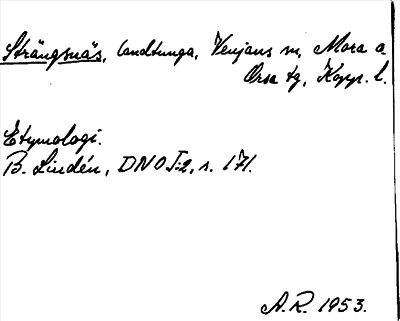 Strängsnäs, landtunga, Venjans sn, Mora o
Orsa tg, Kopp. l.
Etymologi.
B. Lindén, DNO I:2, s. 171.
A.R. 1953.